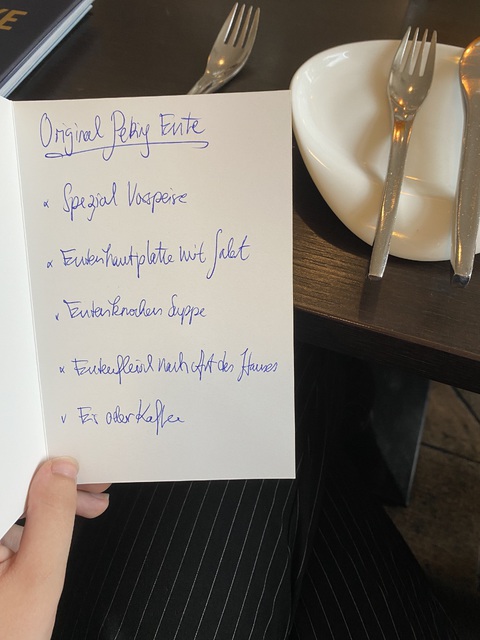 KE
Original Peking Ente
x Spezial Vorspeise
x Entenhautplatte mit Salat
x Entenknochen Suppe
x Entenfleisch nach Art des Hauses
x Eis oder Kaffee